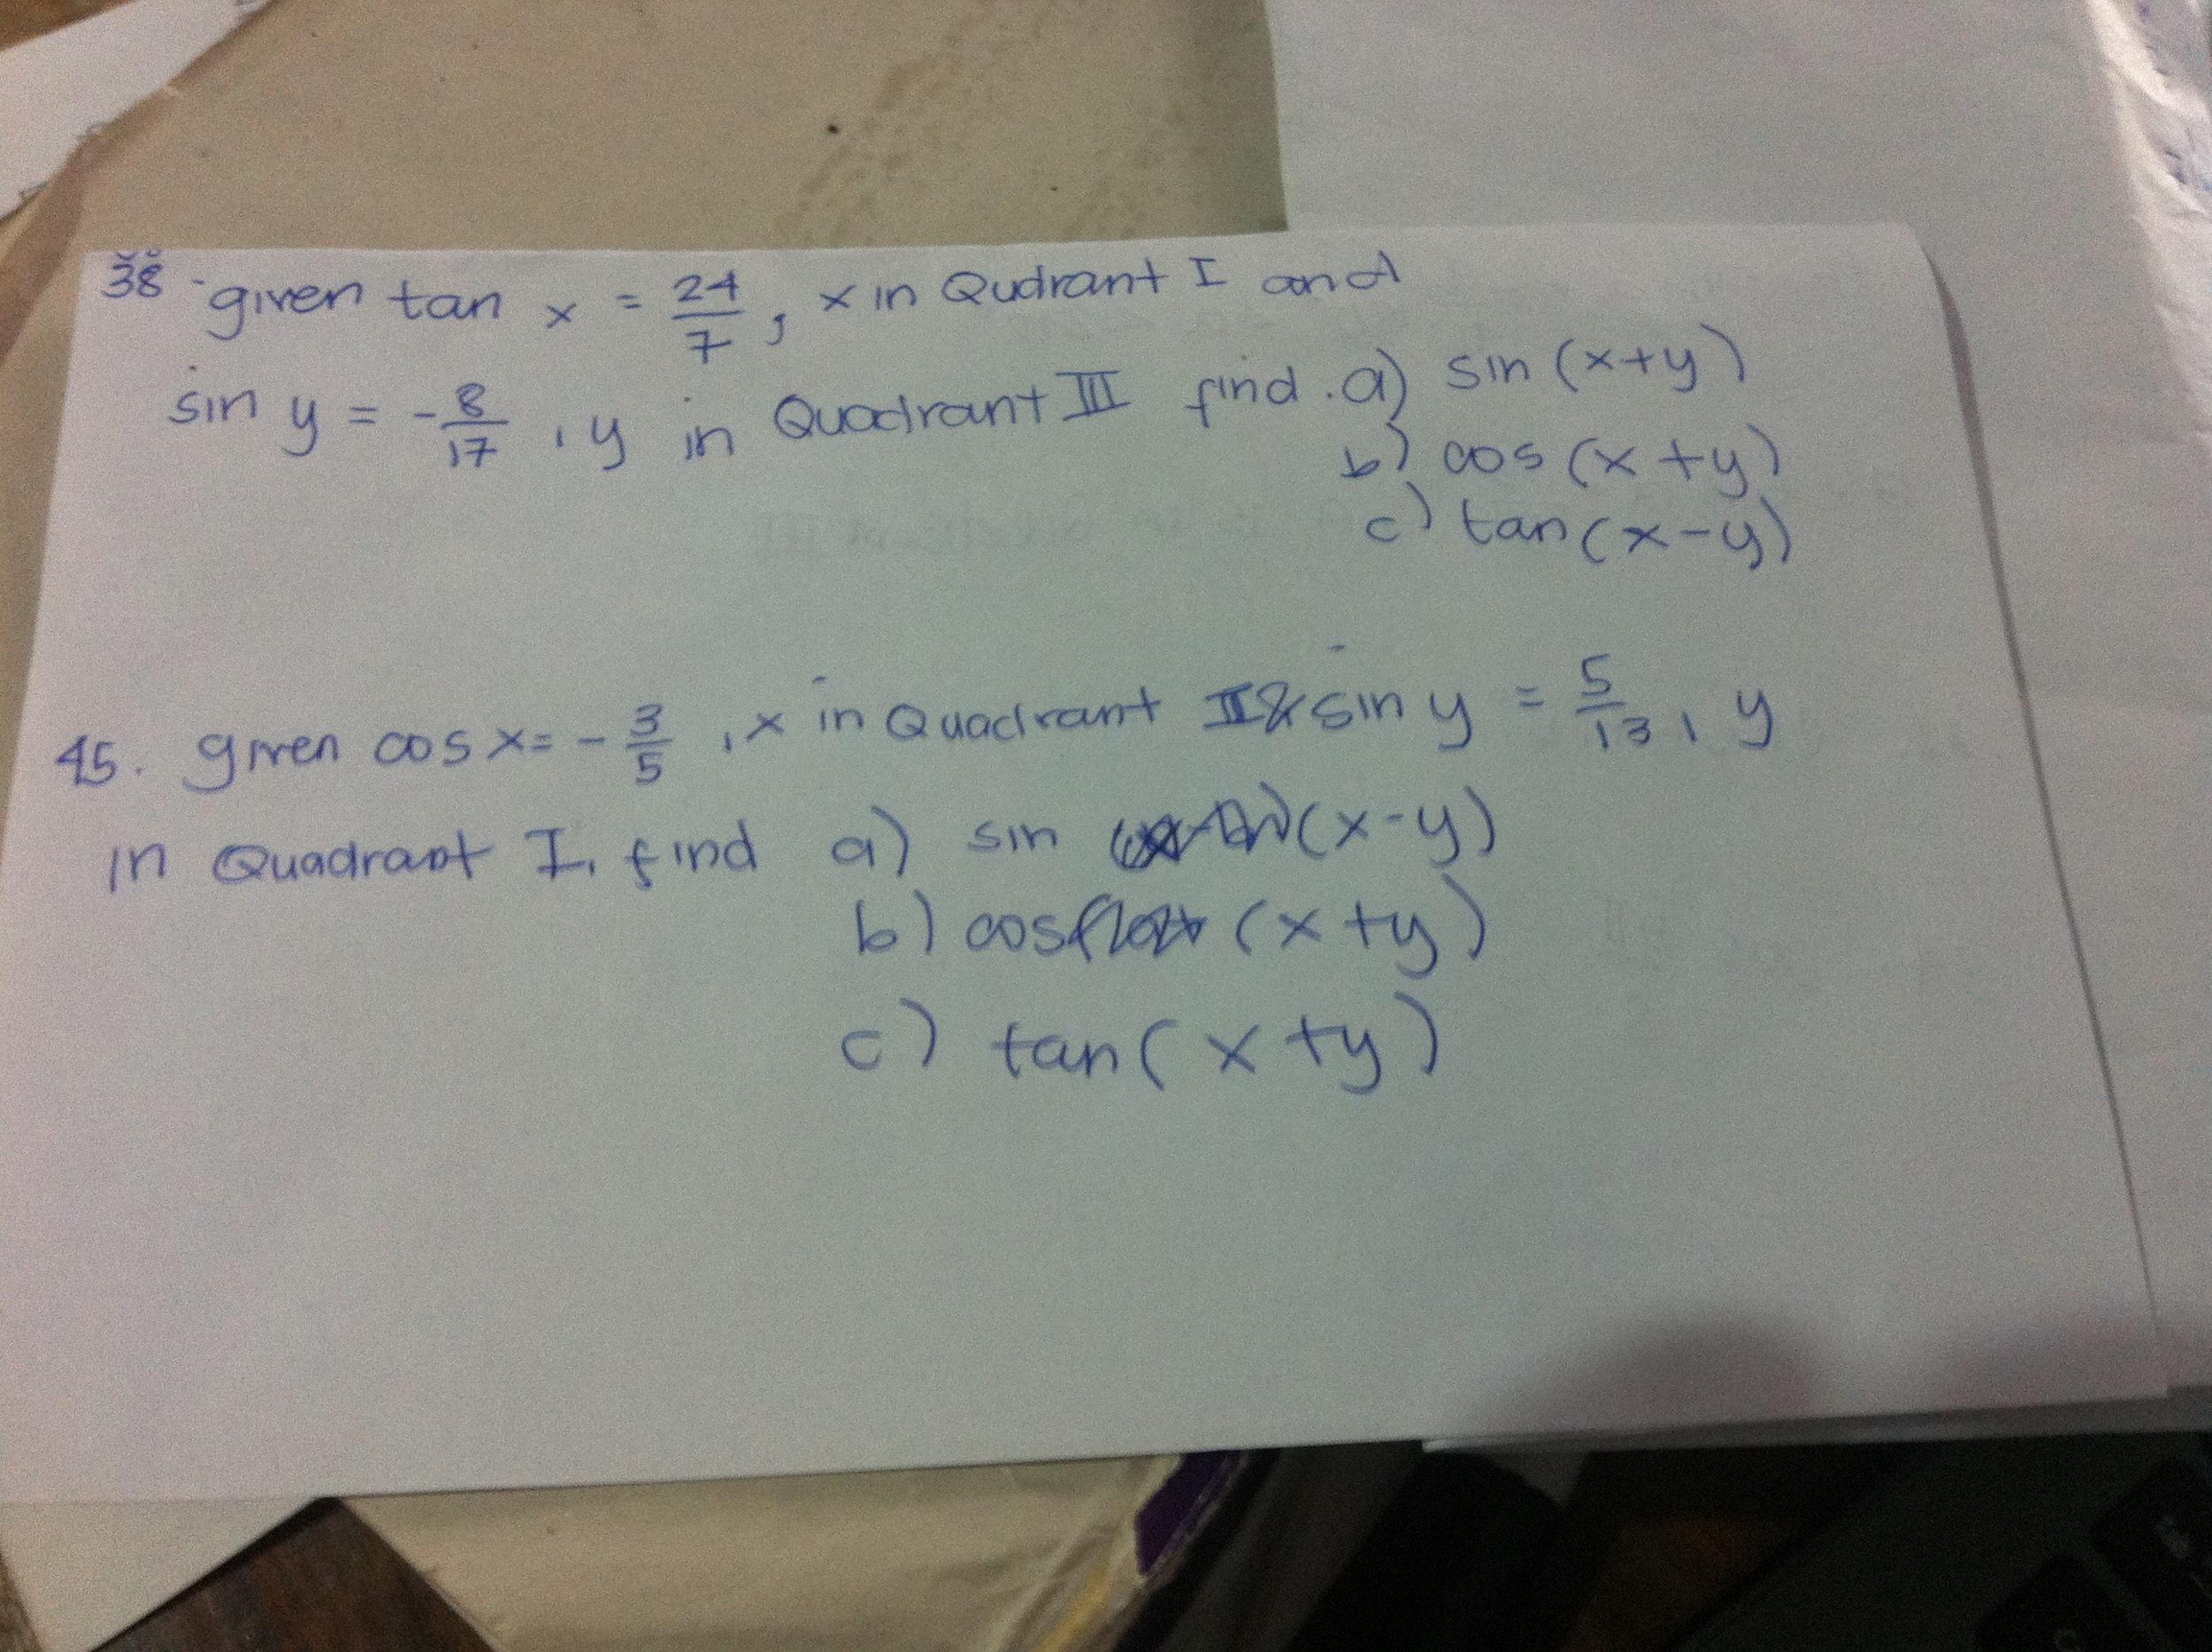 38. given tan x = 24/7, x in Qudrant I and
sin y = -8/17, y in Quadrant III find. a) sin (x+y)
b) cos (x+y)
c) tan (x-y)
45. given cos x = -3/5, x in Quadrant II & sin y = 5/13, y
in Quadrant I, find a) sin (x-y)
b) cos (x+y)
c) tan (x+y)